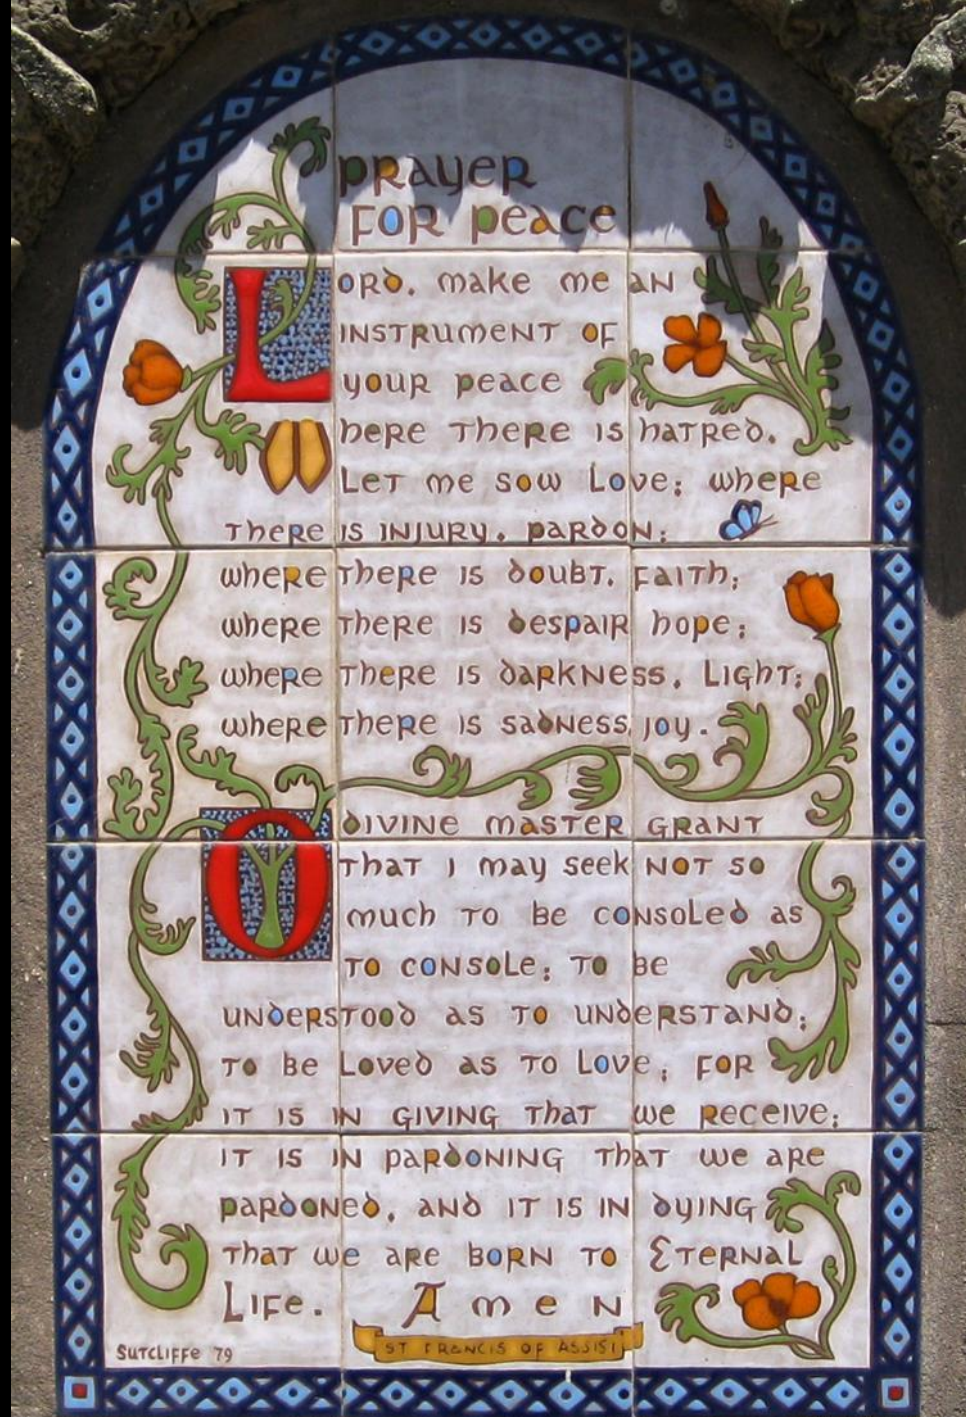 PRAYER
FOR PEACE
LORD, MAKE ME AN
INSTRUMENT OF
YOUR PEACE
WHERE THERE IS HATRED,
LET ME SOW LOVE; WHERE
THERE IS INJURY, PARDON;
WHERE THERE IS DOUBT, FAITH;
WHERE THERE IS DESPAIR HOPE;
WHERE THERE IS DARKNESS, LIGHT;
WHERE THERE IS SADNESS, JOY.
O DIVINE MASTER GRANT
THAT I MAY SEEK NOT SO
MUCH TO BE CONSOLED AS
TO CONSOLE; TO BE
UNDERSTOOD AS TO UNDERSTAND;
TO BE LOVED AS TO LOVE; FOR
IT IS IN GIVING THAT WE RECEIVE;
IT IS IN PARDONING THAT WE ARE
PARDONED, AND IT IS IN DYING
THAT WE ARE BORN TO ETERNAL
LIFE. AMEN
ST FRANCIS OF ASSISI
SUTCLIFFE 79